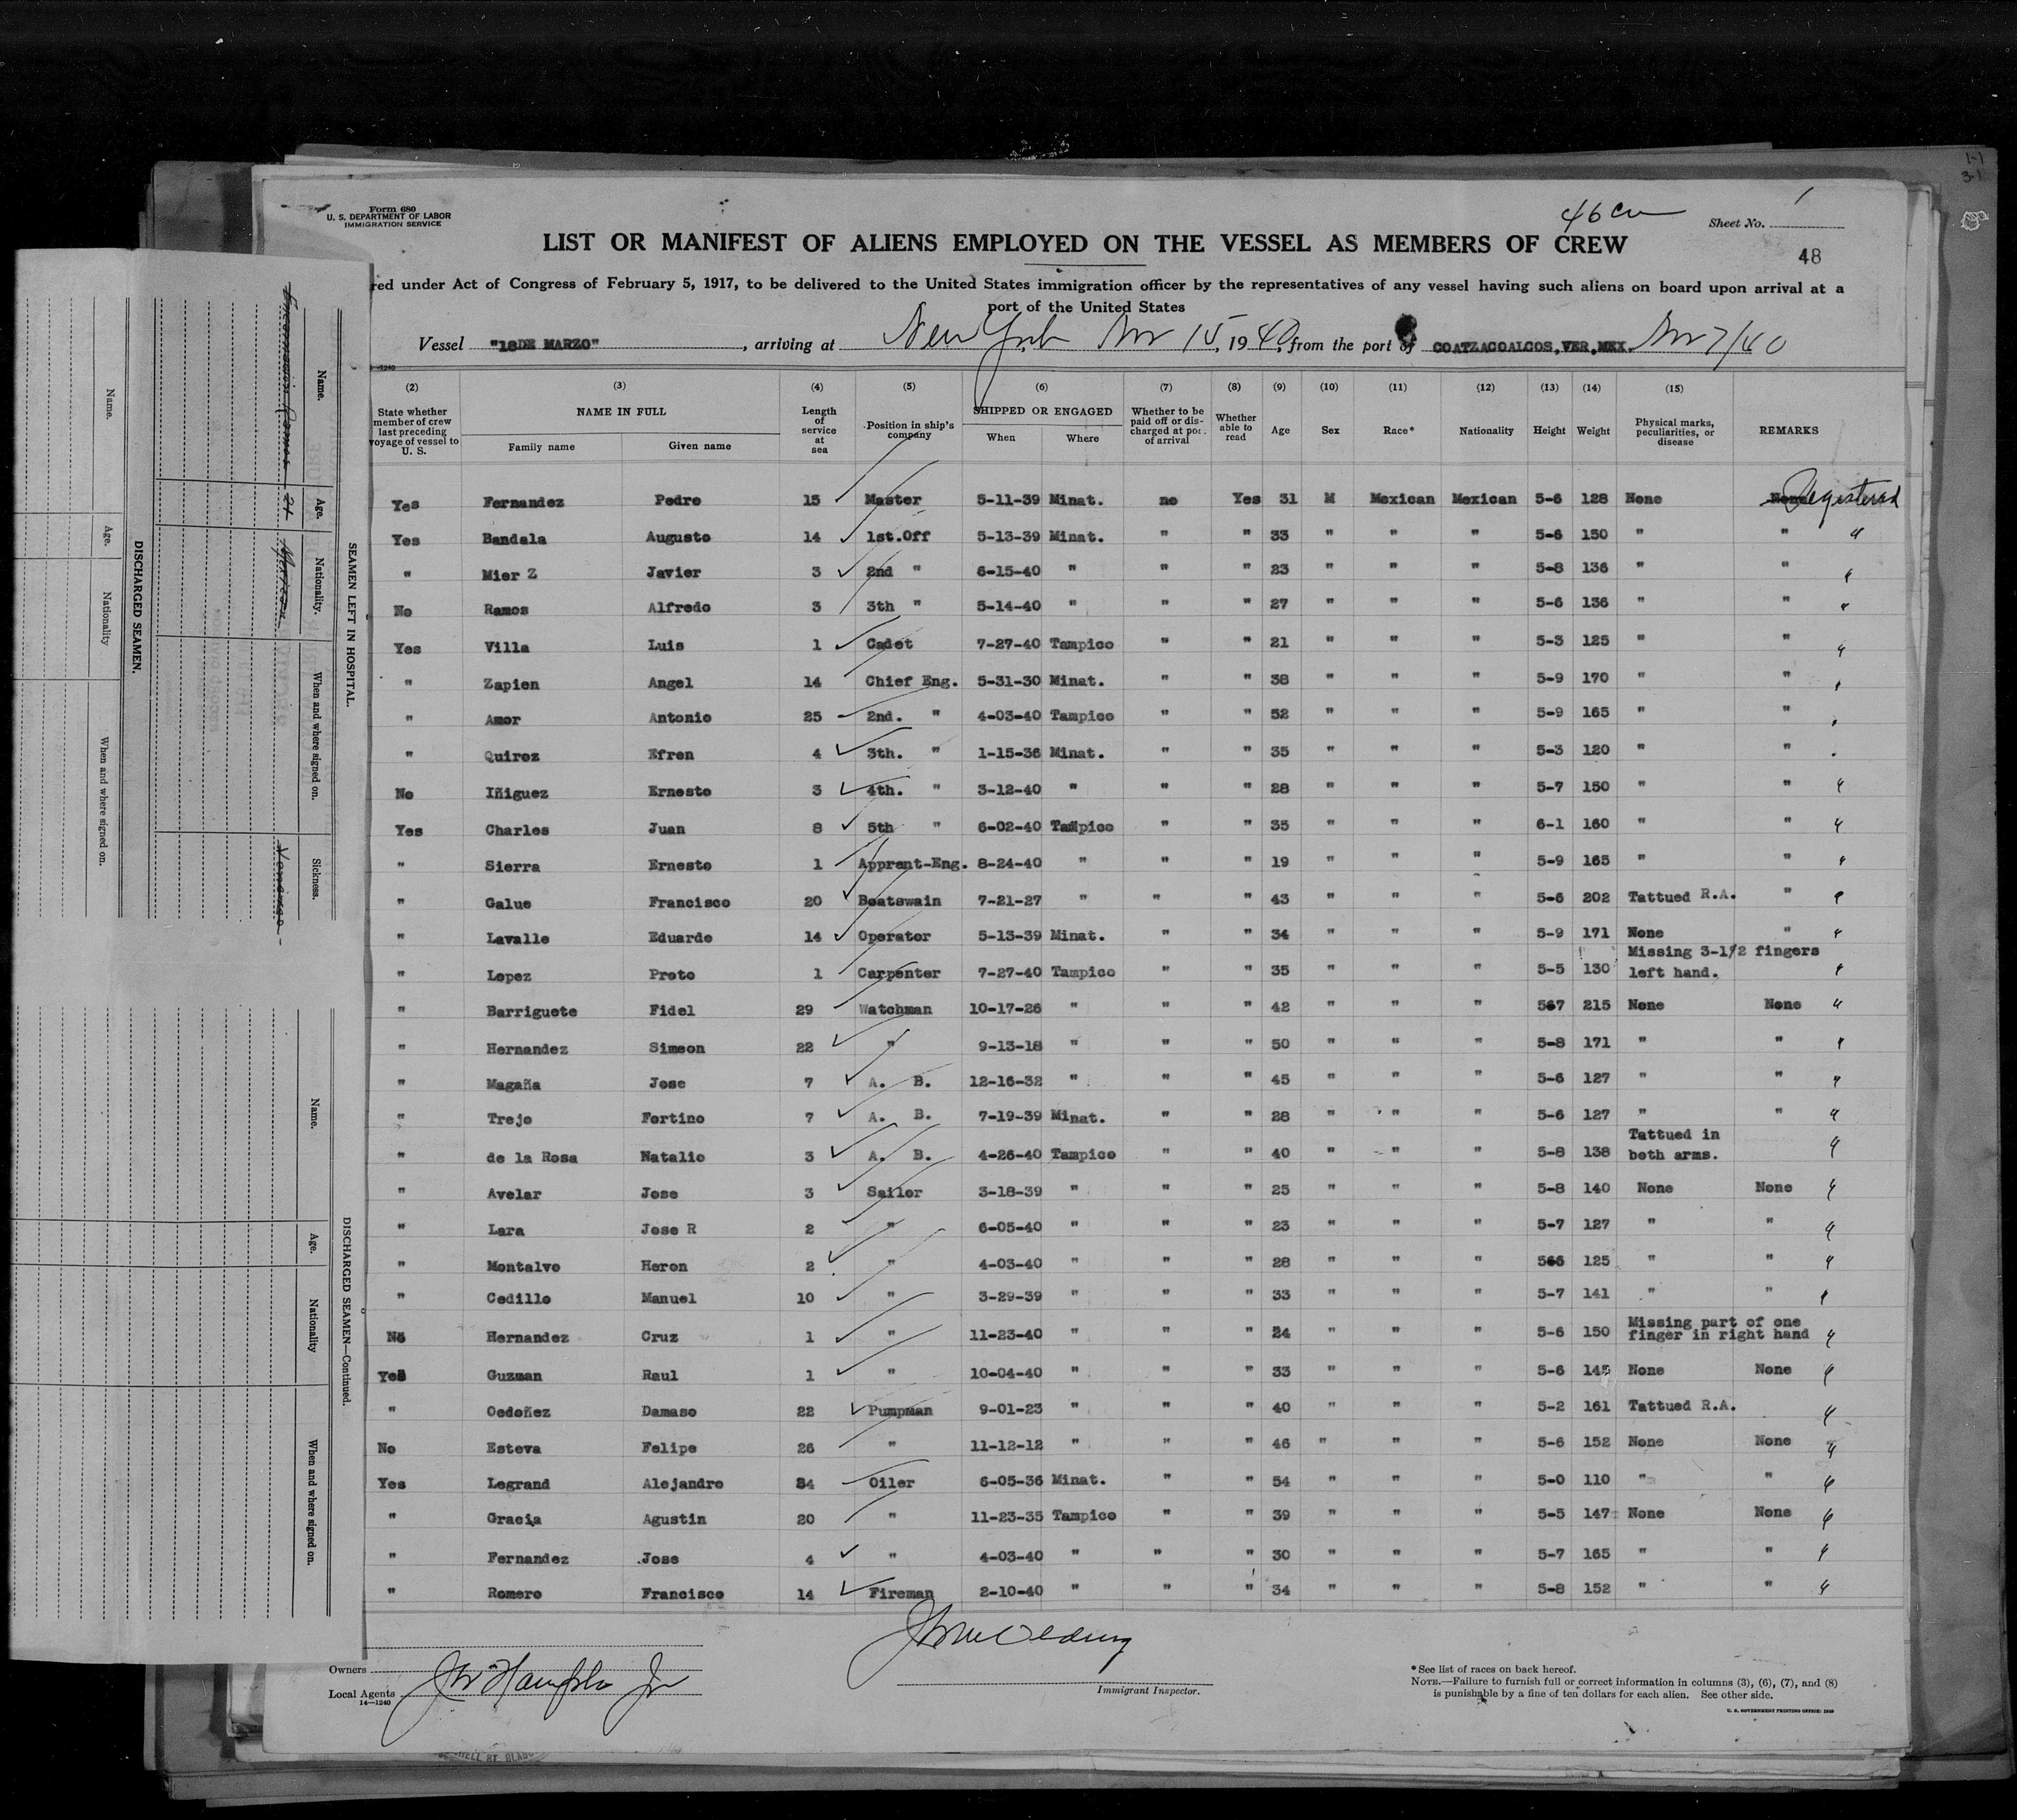 Form 680
U. S. DEPARTMENT OF LABOR
IMMIGRATION SERVICE
46 Cr
Sheet No. 1
48
LIST OR MANIFEST OF ALIENS EMPLOYED ON THE VESSEL AS MEMBERS OF CREW
red under Act of Congress of February 5, 1917, to be delivered to the United States immigration officer by the representatives of any vessel having such aliens on board upon arrival at a
port of the United States
Vessel "18DE MARZO", arriving at New York Nov 15, 1940, from the port of COATZACOALCOS, VER, MEX. Nov 7/40
(2) (3) (4) (5) (6) (7) (8) (9) (10) (11) (12) (13) (14) (15)
State whether member of crew last preceding voyage of vessel to U. S. | NAME IN FULL | Family name | Given name | Length of service at sea | Position in ship's company | SHIPPED OR ENGAGED | When | Where | Whether to be paid off or discharged at port of arrival | Whether able to read | Age | Sex | Race* | Nationality | Height | Weight | Physical marks, peculiarities, or disease | REMARKS
Yes Fernandez Pedro 15 Master 5-11-39 Minat. no Yes 31 M Mexican Mexican 5-6 128 None None Registered
Yes Bandala Augusto 14 1st.Off 5-13-39 Minat. " " 33 " " " 5-6 150 " " "
" Mier Z Javier 3 2nd " 6-15-40 " " " 23 " " " 5-8 136 " " "
No Ramos Alfredo 3 3th " 5-14-40 " " " 27 " " " 5-6 136 " " "
Yes Villa Luis 1 Cadet 7-27-40 Tampico " " 21 " " " 5-3 125 " " "
" Zapien Angel 14 Chief Eng. 5-31-30 Minat. " " 38 " " " 5-9 170 " " "
" Amor Antonio 25 2nd. " 4-03-40 Tampico " " 52 " " " 5-9 165 " " "
" Quiroz Efren 4 3th. " 1-15-36 Minat. " " 35 " " " 5-3 120 " " "
No Iñiguez Ernesto 3 4th. " 3-12-40 " " " 28 " " " 5-7 150 " " "
Yes Charles Juan 8 5th " 6-02-40 Tampico " " 35 " " " 6-1 160 " " "
" Sierra Ernesto 1 Apprent-Eng. 8-24-40 " " " 19 " " " 5-9 165 " " "
" Galue Francisco 20 Boatswain 7-21-27 " " " 43 " " " 5-6 202 Tattued R.A. " "
" Lavalle Eduardo 14 Operator 5-13-39 Minat. " " 34 " " " 5-9 171 None " "
" Lopez Proto 1 Carpenter 7-27-40 Tampico " " 35 " " " 5-5 130 Missing 3-1/2 fingers left hand. "
" Barriguete Fidel 29 Watchman 10-17-26 " " " 42 " " " 567 215 None None "
" Hernandez Simeon 22 " 9-13-18 " " " 50 " " " 5-8 171 " " "
" Magaña Jose 7 A. B. 12-16-32 " " " 45 " " " 5-6 127 " " "
" Trejo Fortino 7 A. B. 7-19-39 Minat. " " 28 " " " 5-6 127 " " "
" de la Rosa Natalio 3 A. B. 4-26-40 Tampico " " 40 " " " 5-8 138 Tattued in both arms. "
" Avelar Jose 3 Sailor 3-18-39 " " " 25 " " " 5-8 140 None None "
" Lara Jose R 2 " 6-05-40 " " " 23 " " " 5-7 127 " " "
" Montalvo Heron 2 " 4-03-40 " " " 28 " " " 566 125 " " "
" Cedillo Manuel 10 " 3-29-39 " " " 33 " " " 5-7 141 " " "
No Hernandez Cruz 1 " 11-23-40 " " " 24 " " " 5-6 150 Missing part of one finger in right hand "
Yes Guzman Raul 1 " 10-04-40 " " " 33 " " " 5-6 145 None None "
" Oedoñez Damaso 22 Pumpman 9-01-23 " " " 40 " " " 5-2 161 Tattued R.A. "
No Esteva Felipe 26 " 11-12-12 " " " 46 " " " 5-6 152 None None "
Yes Legrand Alejandro 34 Oiler 6-05-36 Minat. " " 54 " " " 5-0 110 " " "
" Gracia Agustin 20 " 11-23-35 Tampico " " 39 " " " 5-5 147 None None "
" Fernandez Jose 4 " 4-03-40 " " " 30 " " " 5-7 165 " " "
" Romero Francisco 14 Fireman 2-10-40 " " " 34 " " " 5-8 152 " " "
Owners
Local Agents
14-1240
Immigrant Inspector.
*See list of races on back hereof.
NOTE.—Failure to furnish full or correct information in columns (3), (6), (7), and (8)
is punishable by a fine of ten dollars for each alien. See other side.
U. S. GOVERNMENT PRINTING OFFICE: 1939
SEAMEN LEFT IN HOSPITAL.
Name. Age. Nationality. When and where signed on. Sickness.
Ramos 21 Mexican
DISCHARGED SEAMEN.
Name. Age. Nationality When and where signed on.
DISCHARGED SEAMEN—Continued.
Name. Age. Nationality When and where signed on.
1-1
3-1